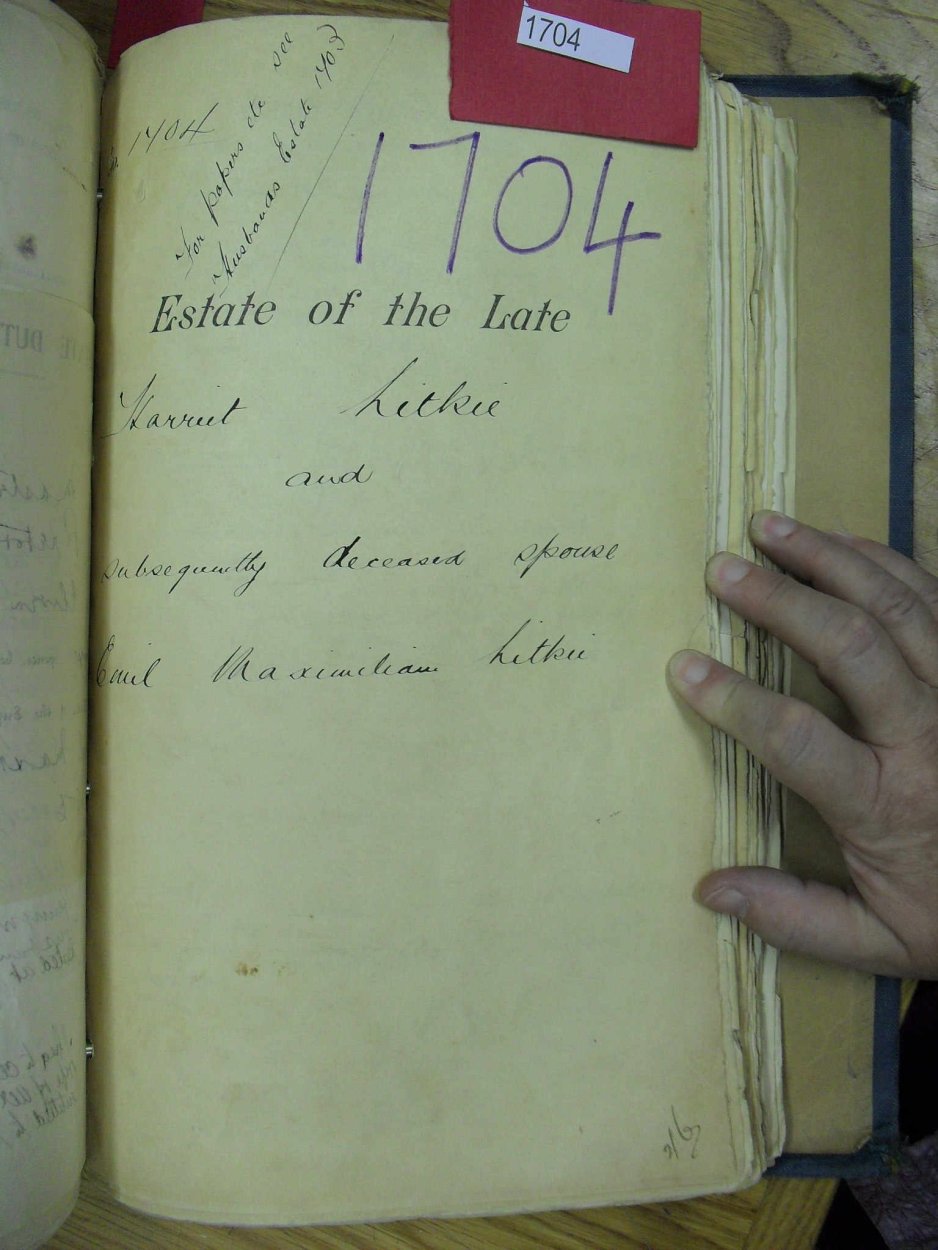 1704
1704
For papers etc see
Husbands Estate 1703
1704
Estate of the Late
Harriet Litkie
and
subsequently deceased spouse
Emil Maximilian Litkie